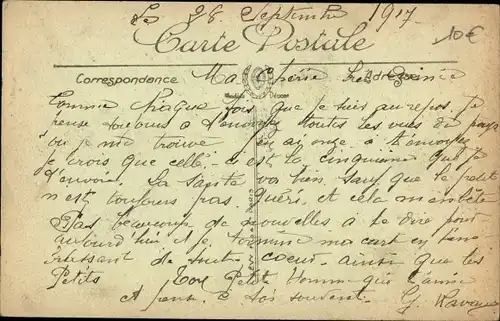 Le 28 Septembre 1917
10€
Carte Postale
Correspondance
Adresse
Ma chérie
Comme chaque fois que je suis au repos, je
pense toujours à t'envoyer toutes les vues du pays
ou je me trouve
je crois que celle-ci est la cinquième que je
t'envoie. La santé va bien sauf que le petit
n'est toujours pas guéri et cela m'embête
Pas beaucoup de nouvelles à te dire pour
aujourd'hui et je termine ma cart en t'em
brassant de tout coeur ainsi que les
Petits Ton Petit Homme qui t'aime
et pense à toi souvent. G.